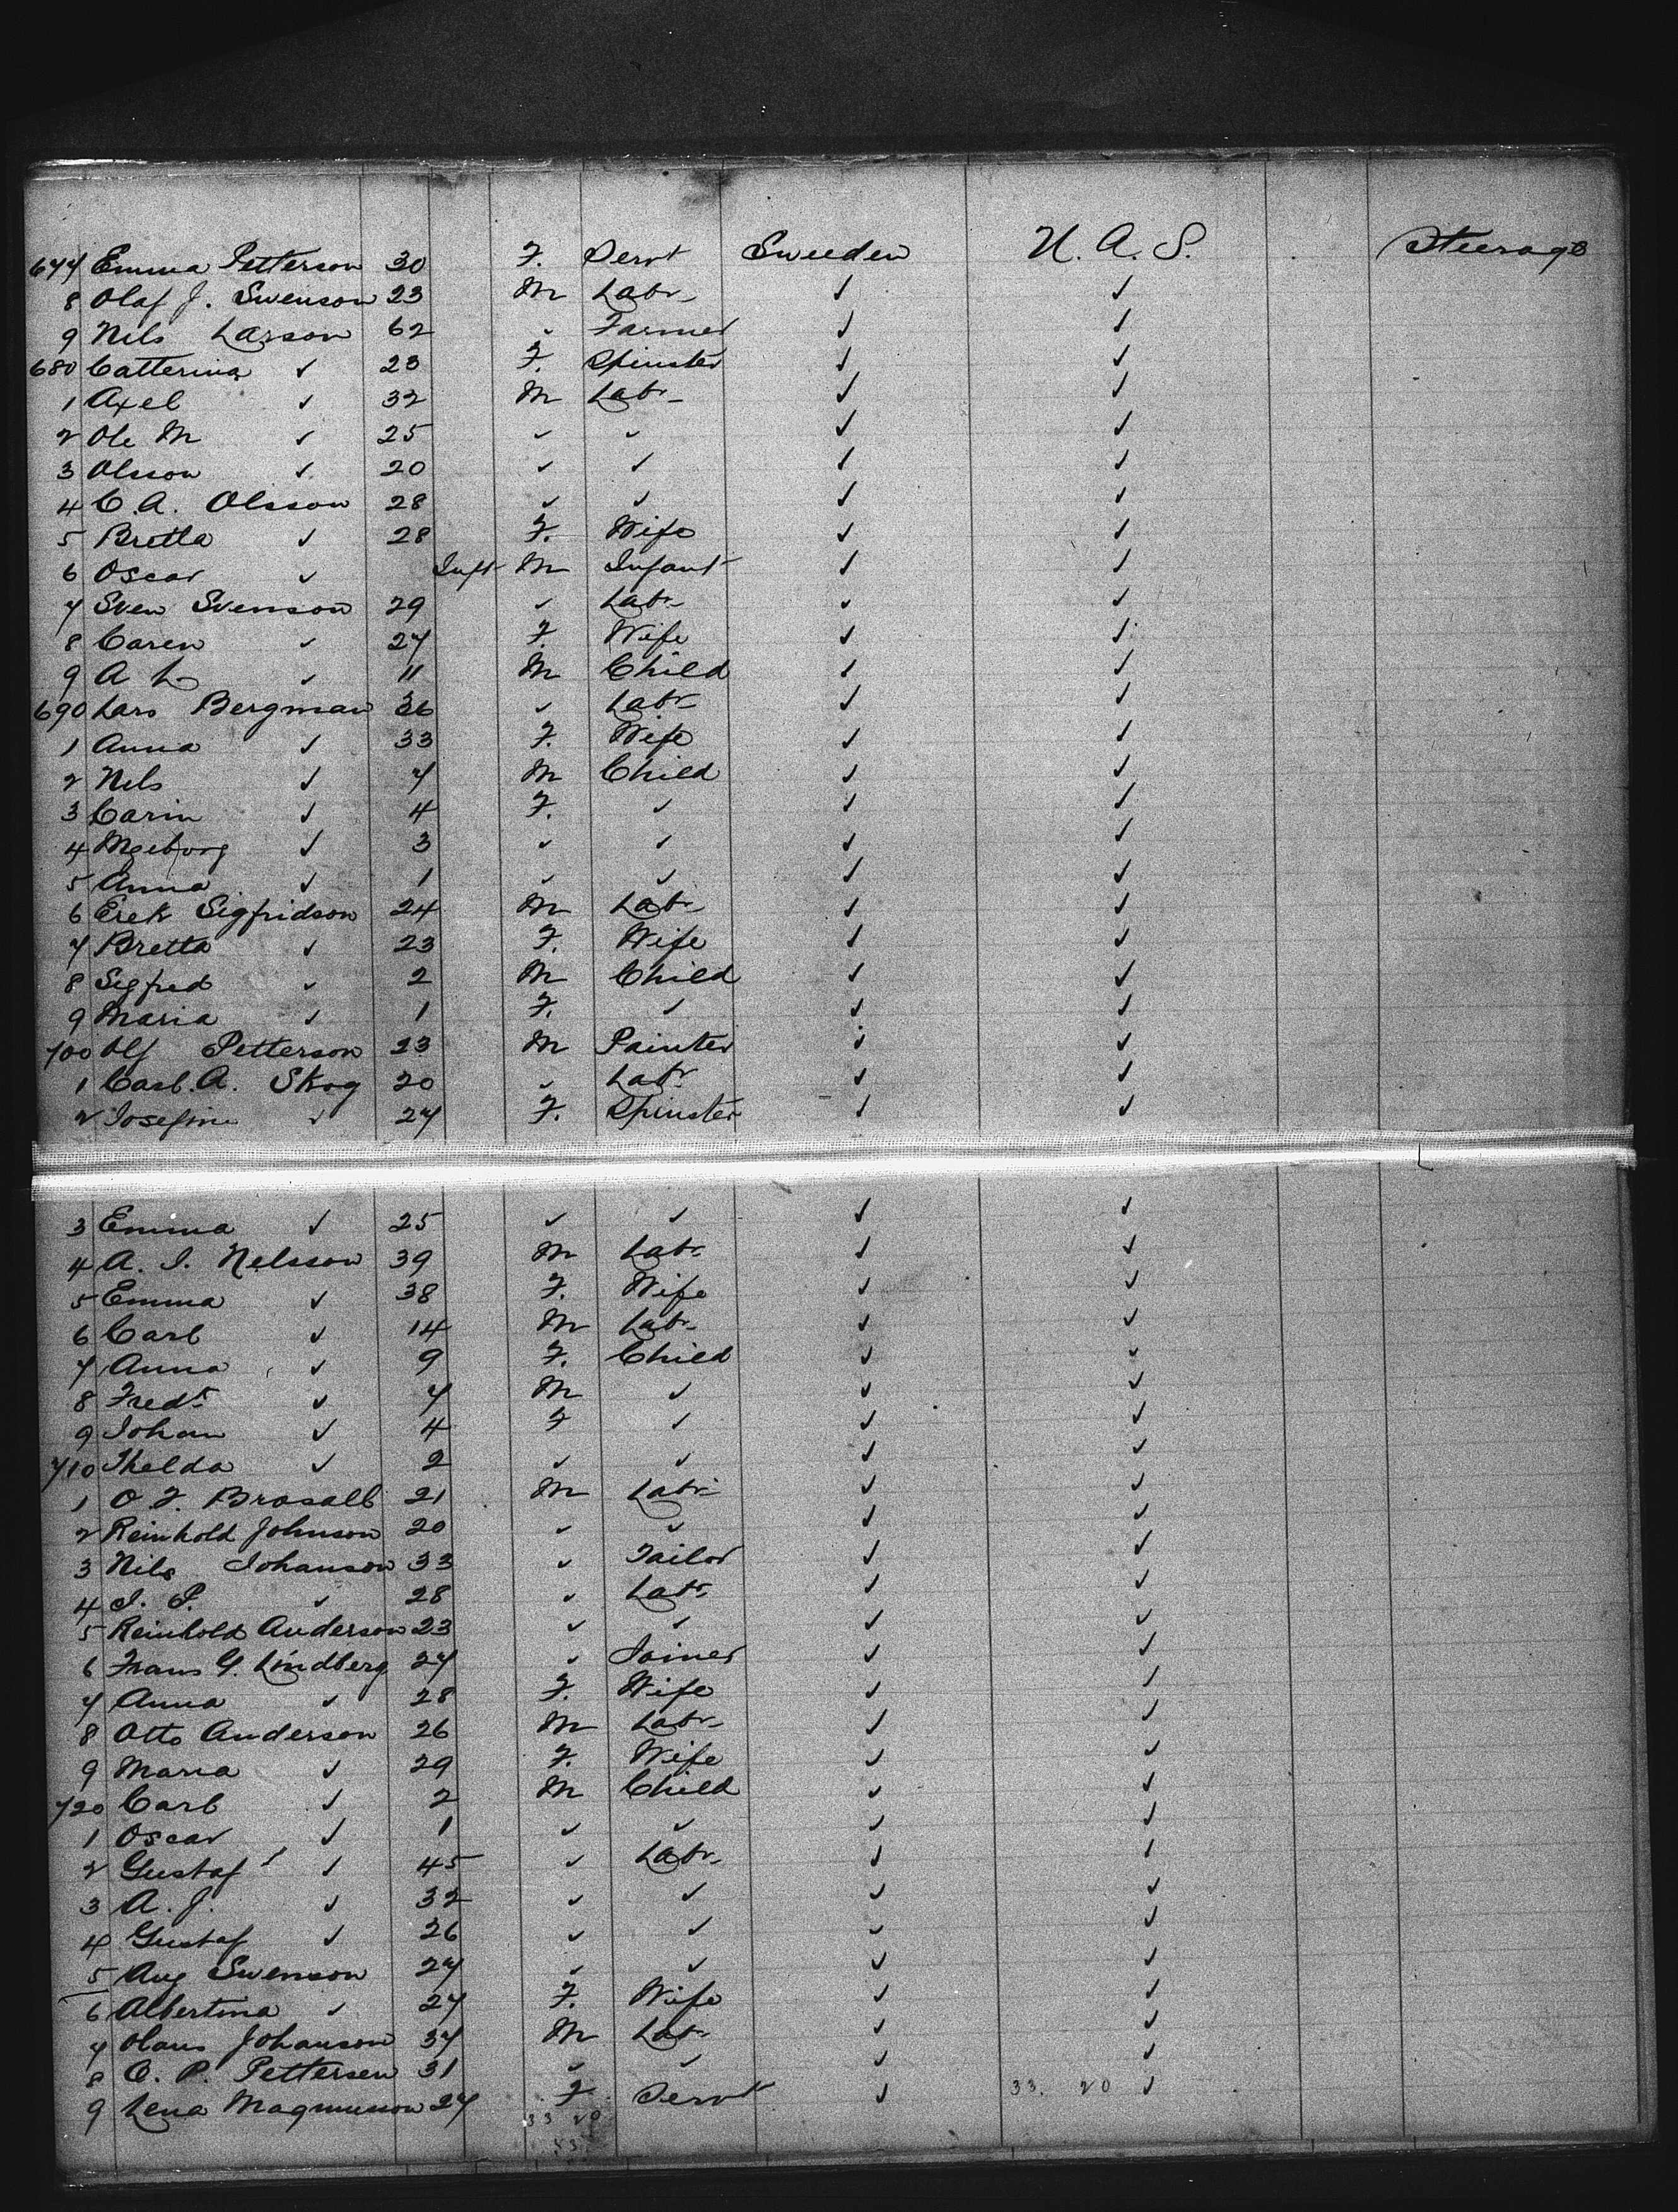 677 Emma Petterson 30 F. Servt Sweeden U. A. S. Steerage
8 Olaf J. Swenson 23 M Labr ✓ ✓
9 Nils Larson 62 ✓ Farmer ✓ ✓
680 Catterina ✓ 23 F. Spinster ✓ ✓
1 Axel ✓ 32 M Labr ✓ ✓
2 Ole M ✓ 25 ✓ ✓ ✓ ✓
3 Olsson ✓ 20 ✓ ✓ ✓ ✓
4 C. A. Olsson 28 ✓ ✓ ✓ ✓
5 Bretta ✓ 28 F. Wife ✓ ✓
6 Oscar ✓ Inft M Infant ✓ ✓
7 Sven Svenson 29 ✓ Labr ✓ ✓
8 Caren ✓ 27 F. Wife ✓ ✓
9 A L ✓ 11 M Child ✓ ✓
690 Lars Bergman 36 ✓ Labr ✓ ✓
1 Anna ✓ 33 F. Wife ✓ ✓
2 Nils ✓ 7 M Child ✓ ✓
3 Carin ✓ 4 F. ✓ ✓ ✓
4 Ingeborg ✓ 3 ✓ ✓ ✓ ✓
5 Anna ✓ 1 ✓ ✓ ✓ ✓
6 Erek Sigfridson 24 M Labr ✓ ✓
7 Bretta ✓ 23 F. Wife ✓ ✓
8 Sigfred ✓ 2 M Child ✓ ✓
9 Maria ✓ 1 F. ✓ ✓ ✓
700 Olf Petterson 23 M Painter ✓ ✓
1 Carl. A. Skog 20 ✓ Labr ✓ ✓
2 Josefine ✓ 27 F. Spinster ✓ ✓
3 Emma ✓ 25 ✓ ✓ ✓ ✓
4 A. J. Nelsson 39 M Labr ✓ ✓
5 Emma ✓ 38 F. Wife ✓ ✓
6 Carl ✓ 14 M Labr ✓ ✓
7 Anna ✓ 9 F. Child ✓ ✓
8 Fredk ✓ 7 M ✓ ✓ ✓
9 Johan ✓ 4 F ✓ ✓ ✓
710 Thelda ✓ 2 ✓ ✓ ✓ ✓
1 O F. Brosall 21 M Labr ✓ ✓
2 Reinhold Johnson 20 ✓ ✓ ✓ ✓
3 Nils Johanson 33 ✓ Tailor ✓ ✓
4 J. P. ✓ 28 ✓ Labr ✓ ✓
5 Reinhold Anderson 23 ✓ ✓ ✓ ✓
6 Frans G. Lindberg 27 ✓ Joiner ✓ ✓
7 Anna ✓ 28 F. Wife ✓ ✓
8 Otto Anderson 26 M Labr ✓ ✓
9 Maria ✓ 29 F. Wife ✓ ✓
720 Carl ✓ 2 M Child ✓ ✓
1 Oscar ✓ 1 ✓ ✓ ✓ ✓
2 Gustaf ✓ 45 ✓ Labr ✓ ✓
3 A. J. ✓ 32 ✓ ✓ ✓ ✓
4 Gustaf ✓ 26 ✓ ✓ ✓ ✓
5 Aug Swenson 27 ✓ ✓ ✓ ✓
6 Albertina ✓ 27 F. Wife ✓ ✓
7 Olaus Johanson 37 M Labr ✓ ✓
8 C. P. Pettersen 31 ✓ ✓ ✓ ✓
9 Lena Magnusson 27 F Servt ✓ 33. 20 ✓
33 20
53